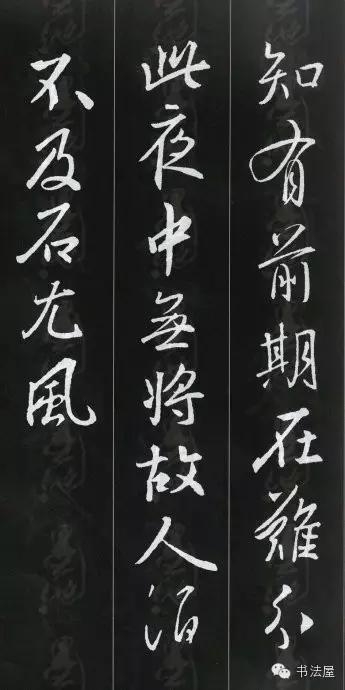 知有前期在難分
此夜中無將故人酒
不及石尤風
书法屋